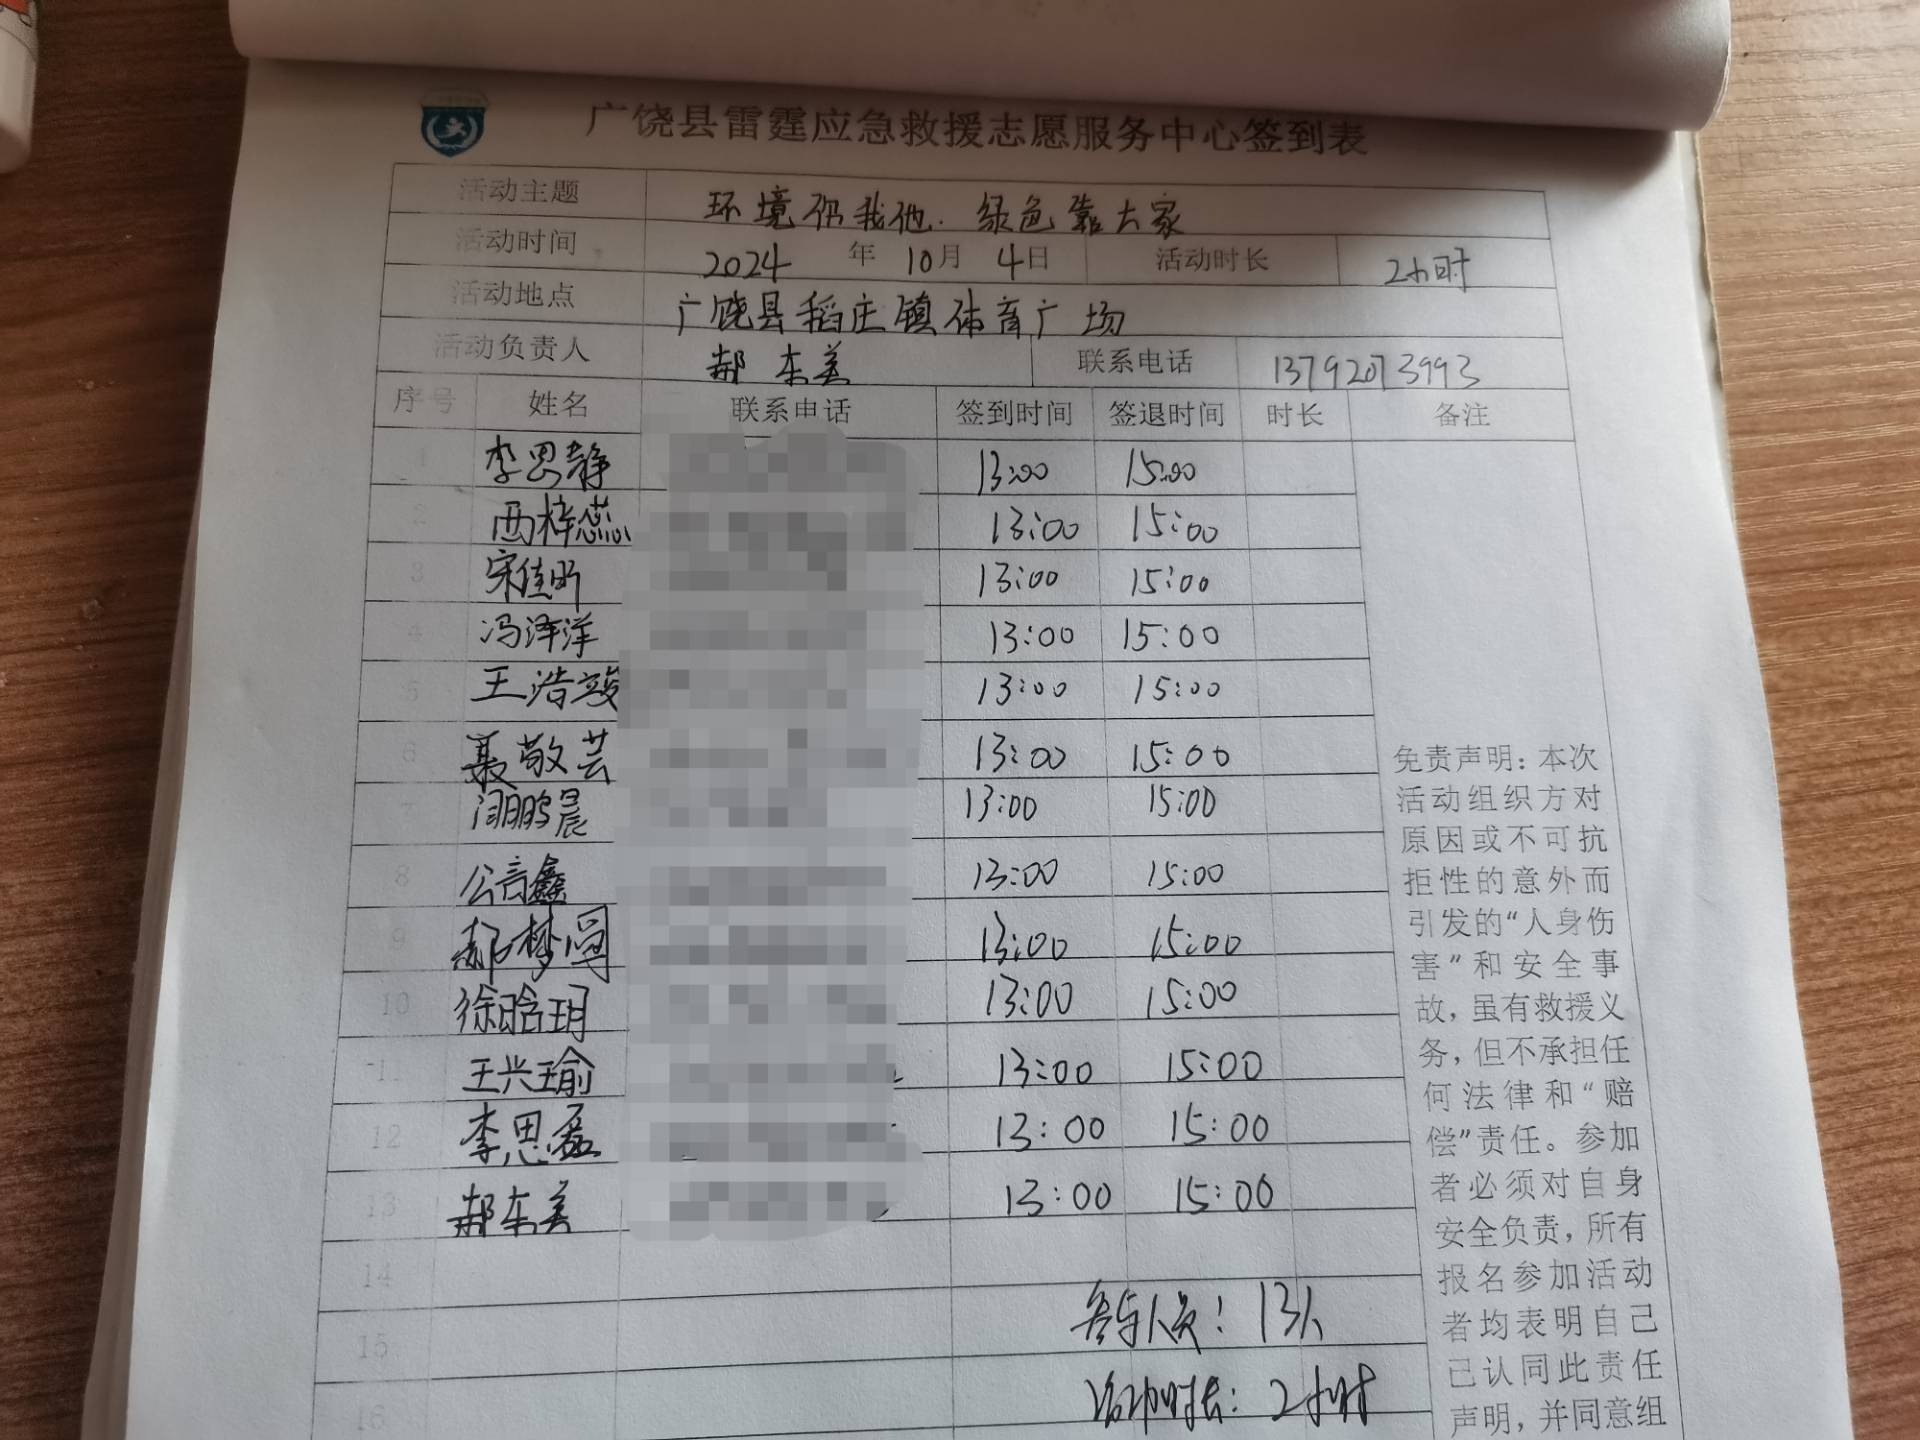 广饶县雷霆应急救援志愿服务中心签到表
活动主题 环境你我他.绿色靠大家
活动时间 2024 年 10月 4日 活动时长 2小时
活动地点 广饶县稻庄镇体育广场
活动负责人 郝东美 联系电话 13792073993
序号 姓名 联系电话 签到时间 签退时间 时长 备注
1 李思静 13:00 15:00
2 西梓蕊 13:00 15:00
3 宋佳昕 13:00 15:00
4 冯泽洋 13:00 15:00
5 王浩竣 13:00 15:00
6 聂敬芸 13:00 15:00
7 闫鹏晨 13:00 15:00
8 公言鑫 13:00 15:00
9 郝梦圆 13:00 15:00
10 徐晗玥 13:00 15:00
11 王兴瑜 13:00 15:00
12 李思磊 13:00 15:00
13 郝东美 13:00 15:00
14
15
16
参与人员：13人
活动时长：2小时
免责声明：本次
活动组织方对
原因或不可抗
拒性的意外而
引发的“人身伤
害”和安全事
故，虽有救援义
务，但不承担任
何法律和“赔
偿”责任。参加
者必须对自身
安全负责，所有
报名参加活动
者均表明自己
已认同此责任
声明，并同意组